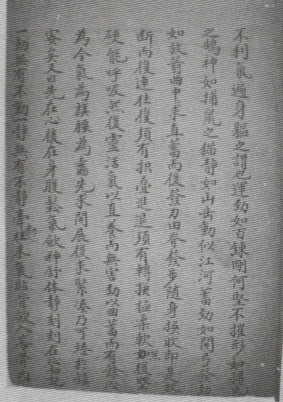 不利氣遍身軀之謂也運勁如百鍊剛何堅不摧形如搏兔
之鶻神如捕鼠之貓靜如山岳動似江河蓄勁如開弓發勁
如放箭曲中求直蓄而後發力由脊發步隨身換收即是放
斷而復連往復須有折疊進退須有轉換極柔軟然後堅
硬能呼吸然後靈活氣以直養而無害勁以曲蓄而有餘心
為令氣為旗腰為纛先求開展後求緊湊乃可臻於縝
密矣又曰先在心後在身腹鬆氣斂神舒體靜刻刻在心切記
一動無有不動一靜無有不靜牽動往來氣貼背斂入脊骨